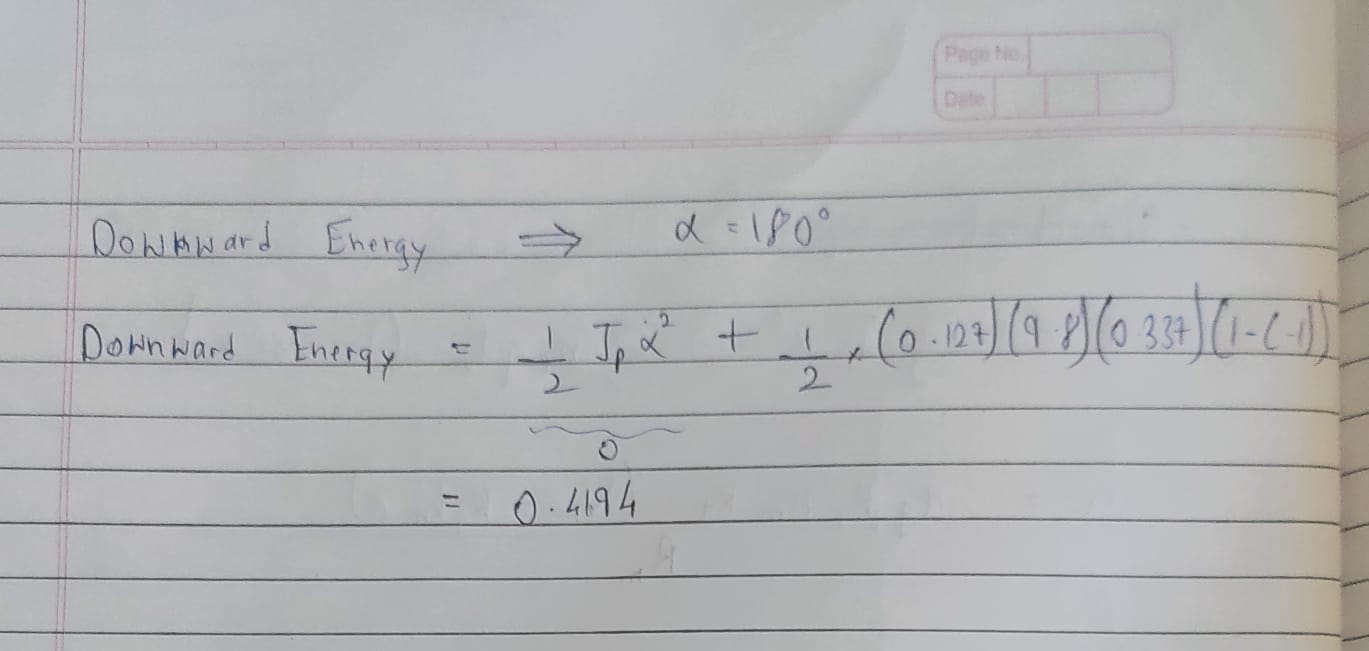 Page No.
Date
Downward Energy ⇒ α = 180°
Downward Energy = 1/2 Jp α̇² + 1/2 × (0.127)(9.8)(0.337)(1-(-1))
0
= 0.4194